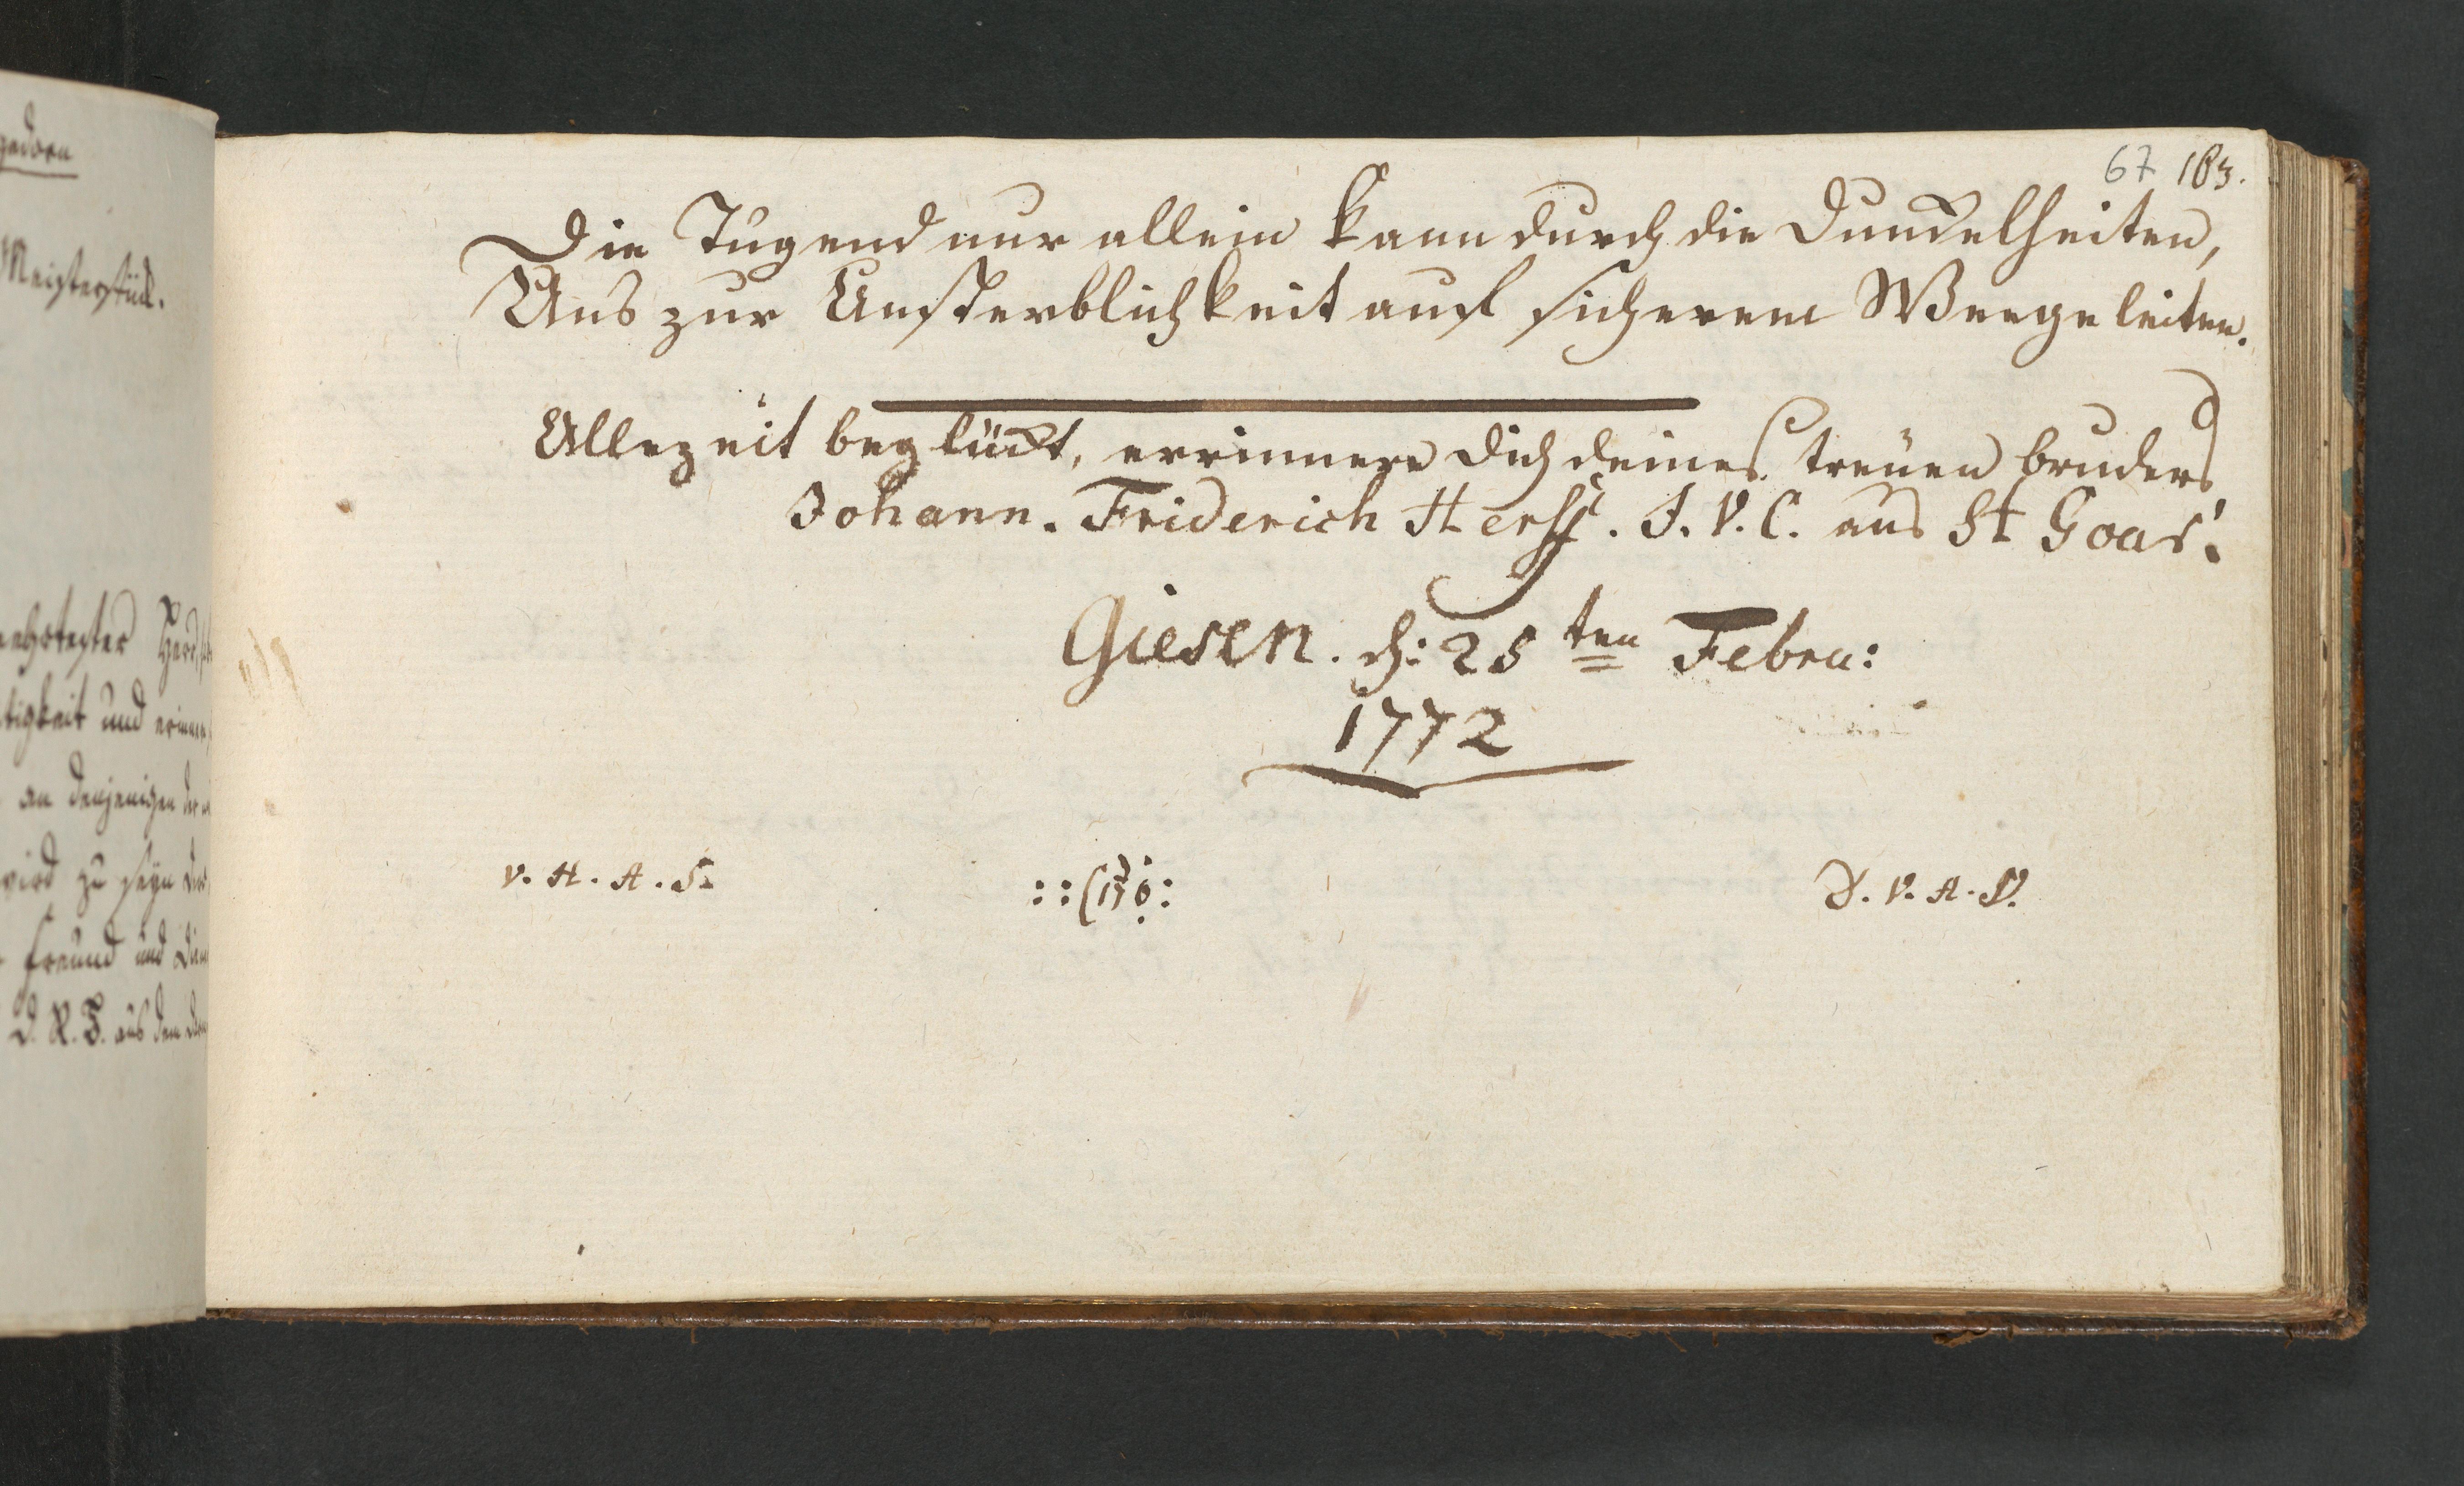 gedorn
Meisterstück.
tigkeit und erinnern
an denjenigen der
wird zu seyn der
Freund und Diener
D. R. B. aus dem
67 183.
Die Tugend nur allein kann durch die Dunckelheiten,
Uns zur Unsterblichkeit auf sicherem Weege leiten.
Allezeit beglückt, errinnere dich deines treüen bruders
Johann. Friderich Herss. J. V. C. aus St Goar.
Giesen. d: 25ten Febru:
1772
V. H. A. S.
D. V. A. V.